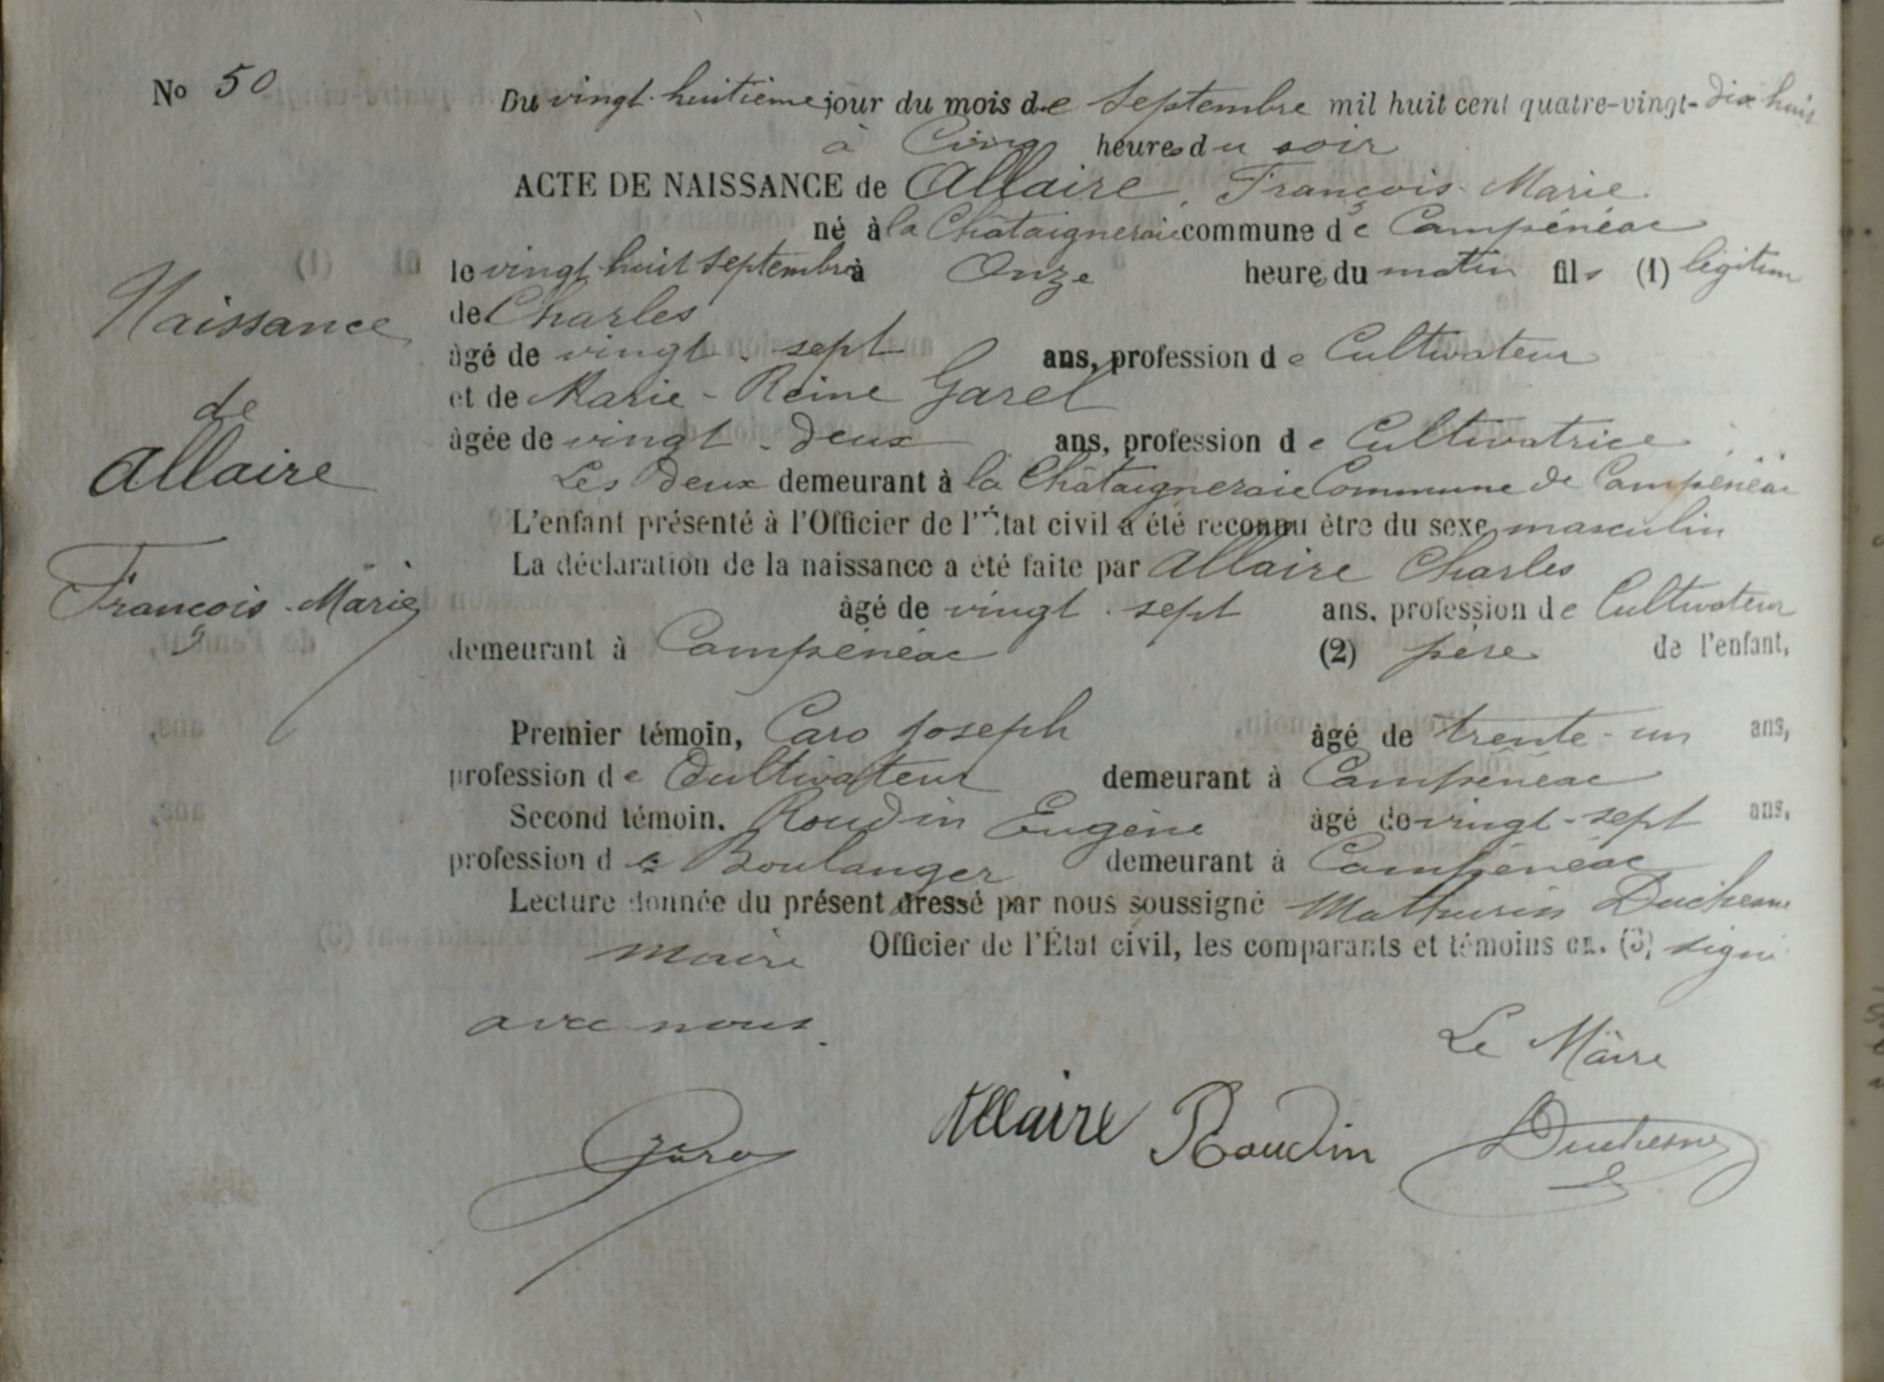 No 50
Du vingt-huitième jour du mois de Septembre mil huit cent quatre-vingt-dix huit
à Cinq heures du soir
ACTE DE NAISSANCE de Allaire, François-Marie
né à la Châtaigneraie commune de Campénéac
le vingt huit septembre à Onze heures du matin fils (1) légitime
de Charles
âgé de vingt-sept ans, profession de Cultivateur
et de Marie-Reine Garel
âgée de vingt-deux ans, profession de Cultivatrice
Les Deux demeurant à la Châtaigneraie Commune de Campénéac
L'enfant présenté à l'Officier de l'État civil a été reconnu être du sexe masculin
La déclaration de la naissance a été faite par Allaire Charles
âgé de vingt-sept ans, profession de Cultivateur
demeurant à Campénéac (2) père de l'enfant,
Premier témoin, Caro Joseph âgé de trente-un ans,
profession de Cultivateur demeurant à Campénéac
Second témoin. Roudin Eugène âgé de vingt-sept ans,
profession de Boulanger demeurant à Campénéac
Lecture donnée du présent dressé par nous soussigné Mathurin Duchesne
Maire Officier de l'État civil, les comparants et témoins on. (3) signé
avec nous.
Le Maire
Caro Allaire Roudin Duchesne
Naissance
de
Allaire
François-Marie